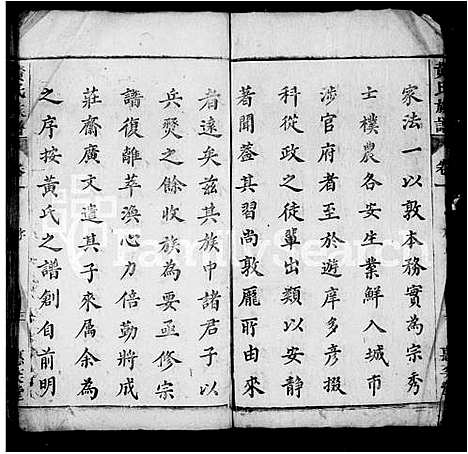 家法一以敦本務實為宗秀
士樸農各安生業鮮入城市
涉官府者至於遊庠多彥掇
科從政之徒輩出類以安靜
著聞蓋其習尚敦龐所由來
者遠矣茲其族中諸君子以
兵燹之餘收族為要亟修宗
譜復離萃渙心力倍勤將成
莊齋廣文遣其子來屬余為
之序按黃氏之譜創自前明
黃氏族譜
卷一
FamilySearch